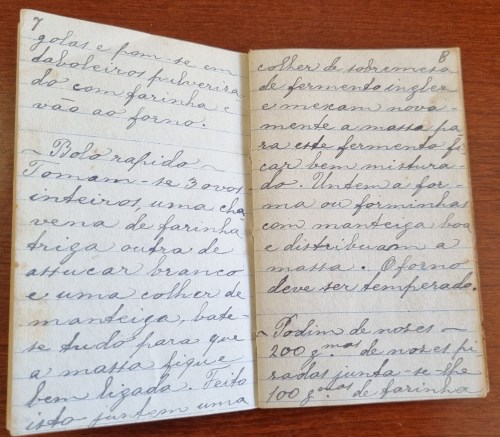 7
golas e pom-se em
taboleiros pulverisa-
do com farinha e
vão ao forno.
- Bolo rapido -
Tomam-se 3 ovos
inteiros, uma cha-
vena de farinha
triga outra de
assucar branco
e uma colher de
manteiga, bate-
se tudo para que
a massa fique
bem ligada. Feito
isto juntem uma
8
colher de sobremesa
de fermento inglez
e mexam nova-
mente a massa pa-
ra este fermento fi-
car bem mistura-
do. Untem a for-
ma ou forminhas
com manteiga boa
e distribuam a
massa. O forno
deve ser temperado.
- Podim de noses -
200 g.mas de noses pi-
sadas junta-se-lhe
100 g.mas de farinha